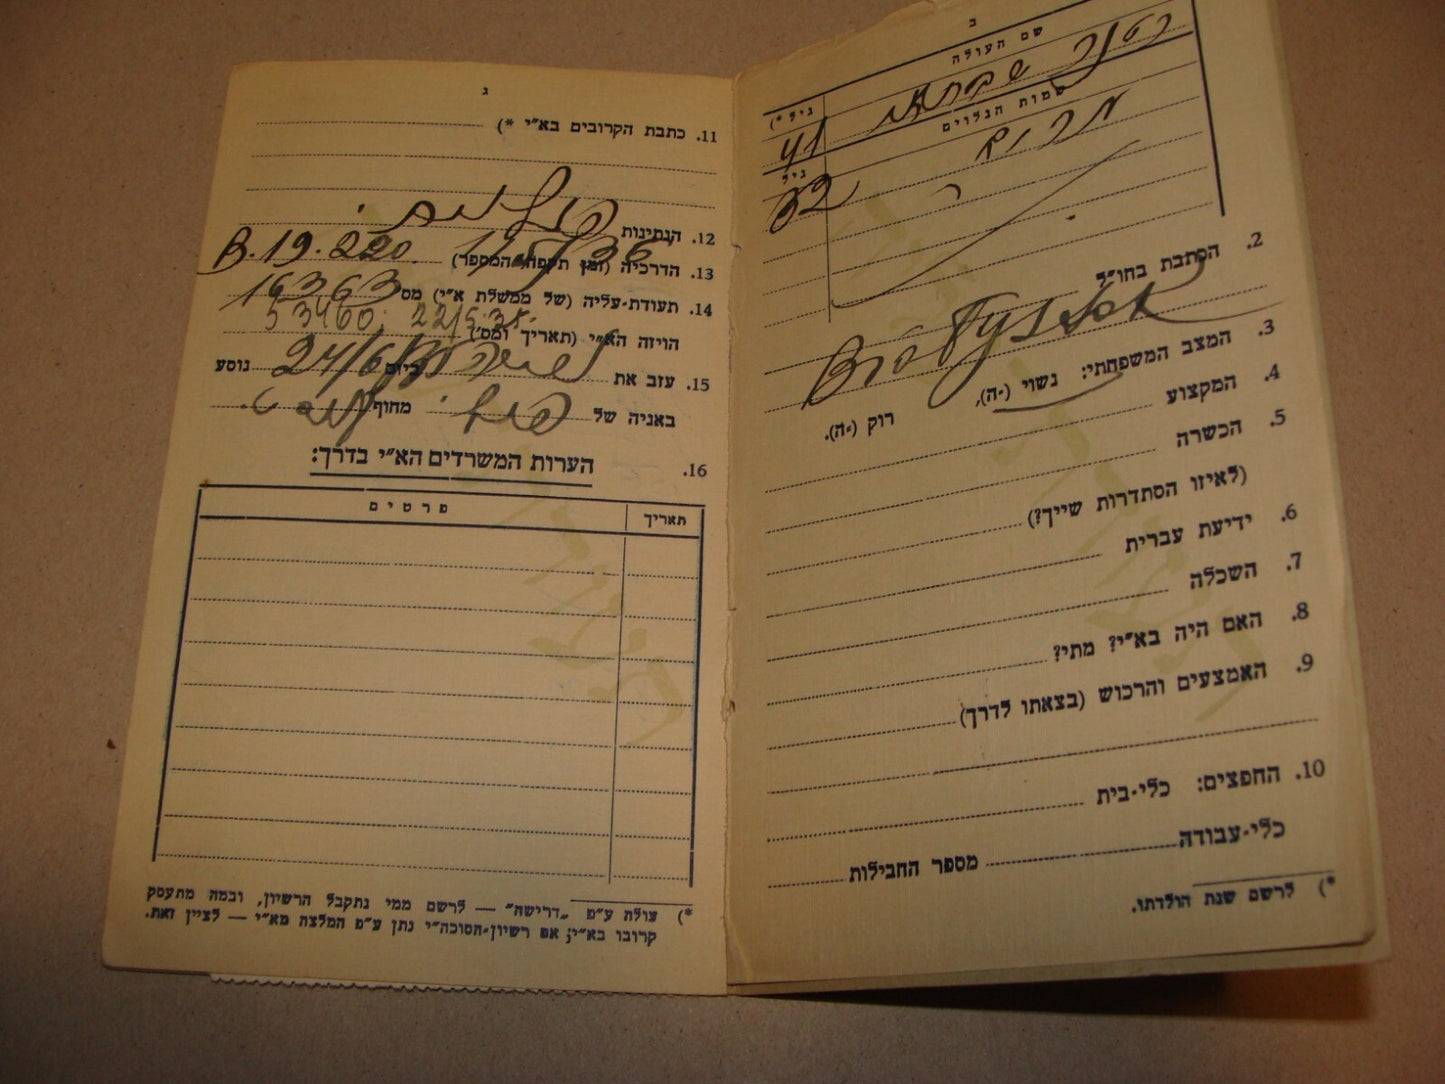 ב
שם העולה
גיל *)
41
שמות הנלוים
גיל
מרים
32
2. הכתבת בחו״ל
Białystok
3. המצב המשפחתי: נשוי (־ה),
רוק (־ה).
4. המקצוע
5. הכשרה
(לאיזו הסתדרות שייך?)
6. ידיעת עברית
7. השכלה
8. האם היה בא״י? מתי?
9. האמצעים והרכוש (בצאתו לדרך)
10. החפצים: כלי־בית
כלי־עבודה מספר החבילות
*) לרשם שנת הולדתו.
ג
11. כתבת הקרובים בא״י *)
12. הנתינות
13. הדרכיה (זמן תקפה, המספר) B.19.220.
14. תעודת־עליה (של ממשלת א״י) מס׳ 16363
הויזה הא״י (תאריך ומס׳) 53460, 22/5.35.
15. עזב את ביום 24/6 נוסע
באניה של מחוף
16. הערות המשרדים הא״י בדרך:
תאריך פרטים
*) עולה ע״פ „דרישה״ — לרשם ממי נתקבל הרשיון, ובמה מתעסק
קרובו בא״י; אם רשיון־הסוכה״י נתן ע״פ המלצה מא״י — לציין זאת.